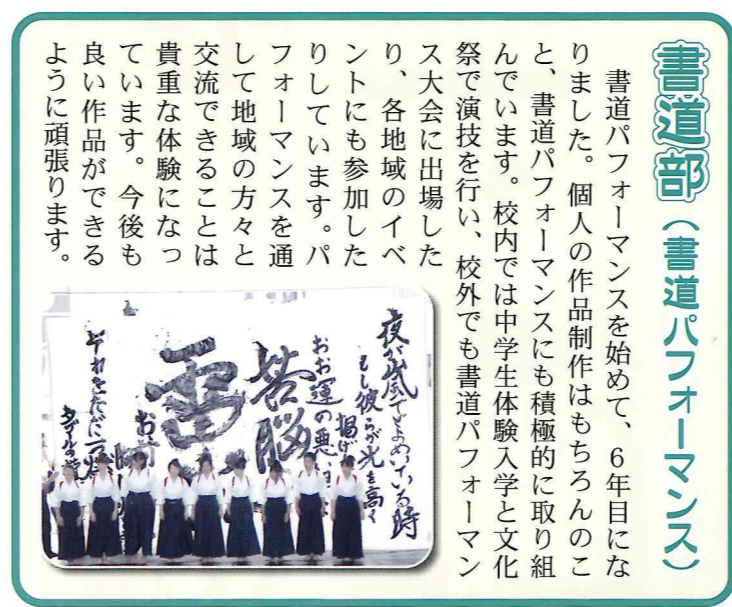 書道部（書道パフォーマンス）
書道パフォーマンスを始めて、6年目にな
りました。個人の作品制作はもちろんのこ
と、書道パフォーマンスにも積極的に取り組
んでいます。校内では中学生体験入学と文化
祭で演技を行い、校外でも書道パフォーマン
ス大会に出場した
り、各地域のイベ
ントにも参加した
りしています。パ
フォーマンスを通
して地域の方々と
交流できることは
貴重な体験になっ
ています。今後も
良い作品ができる
ように頑張ります。
夜が嵐でどよめいている時
もし彼らが光を高く
掲げ
おお運の悪い
苦悩
雷
それをただ一つ